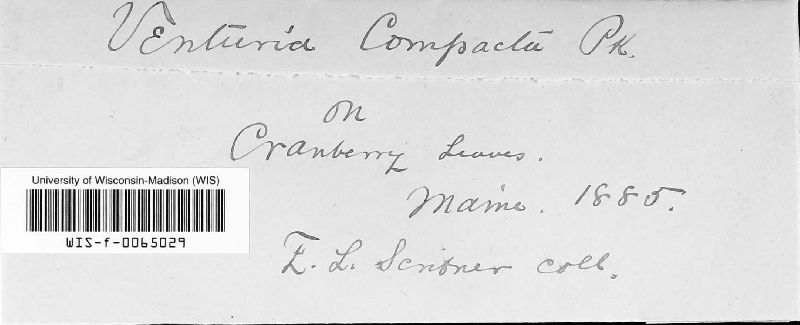 Venturia Compacta Pk.
on
Cranberry leaves.
Maine. 1885.
F. L. Scribner coll.
University of Wisconsin-Madison (WIS)
WIS-f-0065029